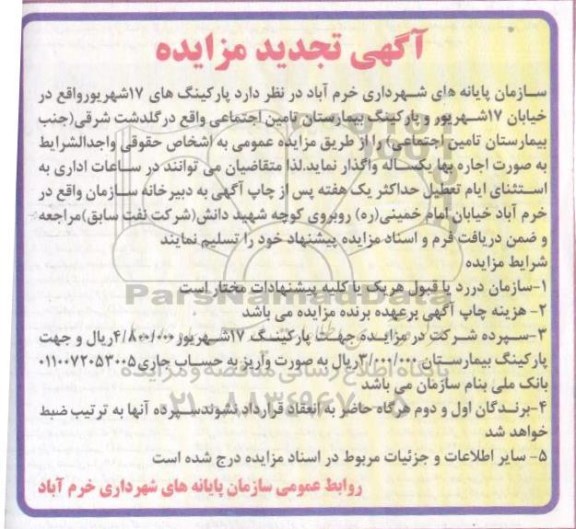 آگهی تجدید مزایده
سازمان پایانه های شهرداری خرم آباد در نظر دارد پارکینگ های ۱۷شهریورواقع در
خیابان ۱۷شهریور و پارکینگ بیمارستان تامین اجتماعی واقع درگلدشت شرقی(جنب
بیمارستان تامین اجتماعی) را از طریق مزایده عمومی به اشخاص حقوقی واجدالشرایط
به صورت اجاره بها یکساله واگذار نماید.لذا متقاضیان می توانند در ساعات اداری به
استثنای ایام تعطیل حداکثر یک هفته پس از چاپ آگهی به دبیرخانه سازمان واقع در
خرم آباد خیابان امام خمینی(ره) روبروی کوچه شهید دانش(شرکت نفت سابق)مراجعه
و ضمن دریافت فرم و اسناد مزایده پیشنهاد خود را تسلیم نمایند
شرایط مزایده
۱-سازمان دررد یا قبول هریک یا کلیه پیشنهادات مختار است
ParsNamadData
۲- هزینه چاپ آگهی برعهده برنده مزایده می باشد
۳-سپرده شرکت در مزایده جهت پارکینگ ۱۷شهریور ۴/۸۰۰/۰۰۰ریال و جهت
پارکینگ بیمارستان ۳/۰۰۰/۰۰۰ریال به صورت واریز به حساب جاری۰۱۱۰۰۷۲۰۵۳۰۰۵
پایگاه اطلاع رسانی مناقصه و مزایده
بانک ملی بنام سازمان می باشد
۰۲۱-۸۸۳۴۹۶۷۰-۵
۴-برندگان اول و دوم هرگاه حاضر به انعقاد قرارداد نشوندسپرده آنها به ترتیب ضبط
خواهد شد
۵- سایر اطلاعات و جزئیات مربوط در اسناد مزایده درج شده است
روابط عمومی سازمان پایانه های شهرداری خرم آباد